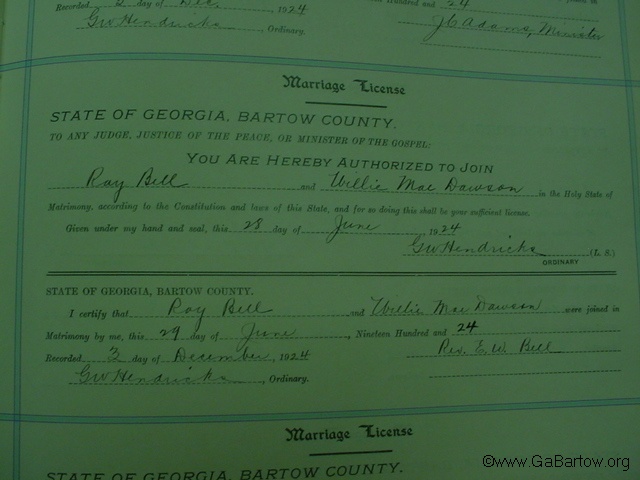 Recorded 2 day of Dec. 1924
Hundred and 24
GW Hendricks, Ordinary.
J C Adams, Minister
Marriage License
STATE OF GEORGIA, BARTOW COUNTY.
TO ANY JUDGE, JUSTICE OF THE PEACE, OR MINISTER OF THE GOSPEL:
YOU ARE HEREBY AUTHORIZED TO JOIN
Roy Bell and Willie Mae Dawson in the Holy State of
Matrimony, according to the Constitution and laws of this State, and for so doing this shall be your sufficient license.
Given under my hand and seal, this 28 day of June 1924
GW Hendricks (L. S.)
ORDINARY
STATE OF GEORGIA, BARTOW COUNTY.
I certify that Roy Bell and Willie Mae Dawson were joined in
Matrimony by me, this 29 day of June, Nineteen Hundred and 24
Recorded 3 day of December, 1924 Rev. E. W. Bell
GW Hendricks, Ordinary.
Marriage License
STATE OF GEORGIA, BARTOW COUNTY.
©www.GaBartow.org